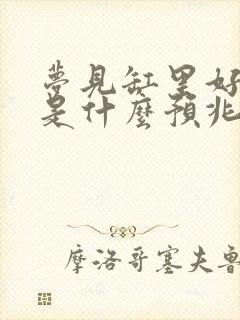 夢見缸里好
是什麼預兆
摩洛哥塞夫魯